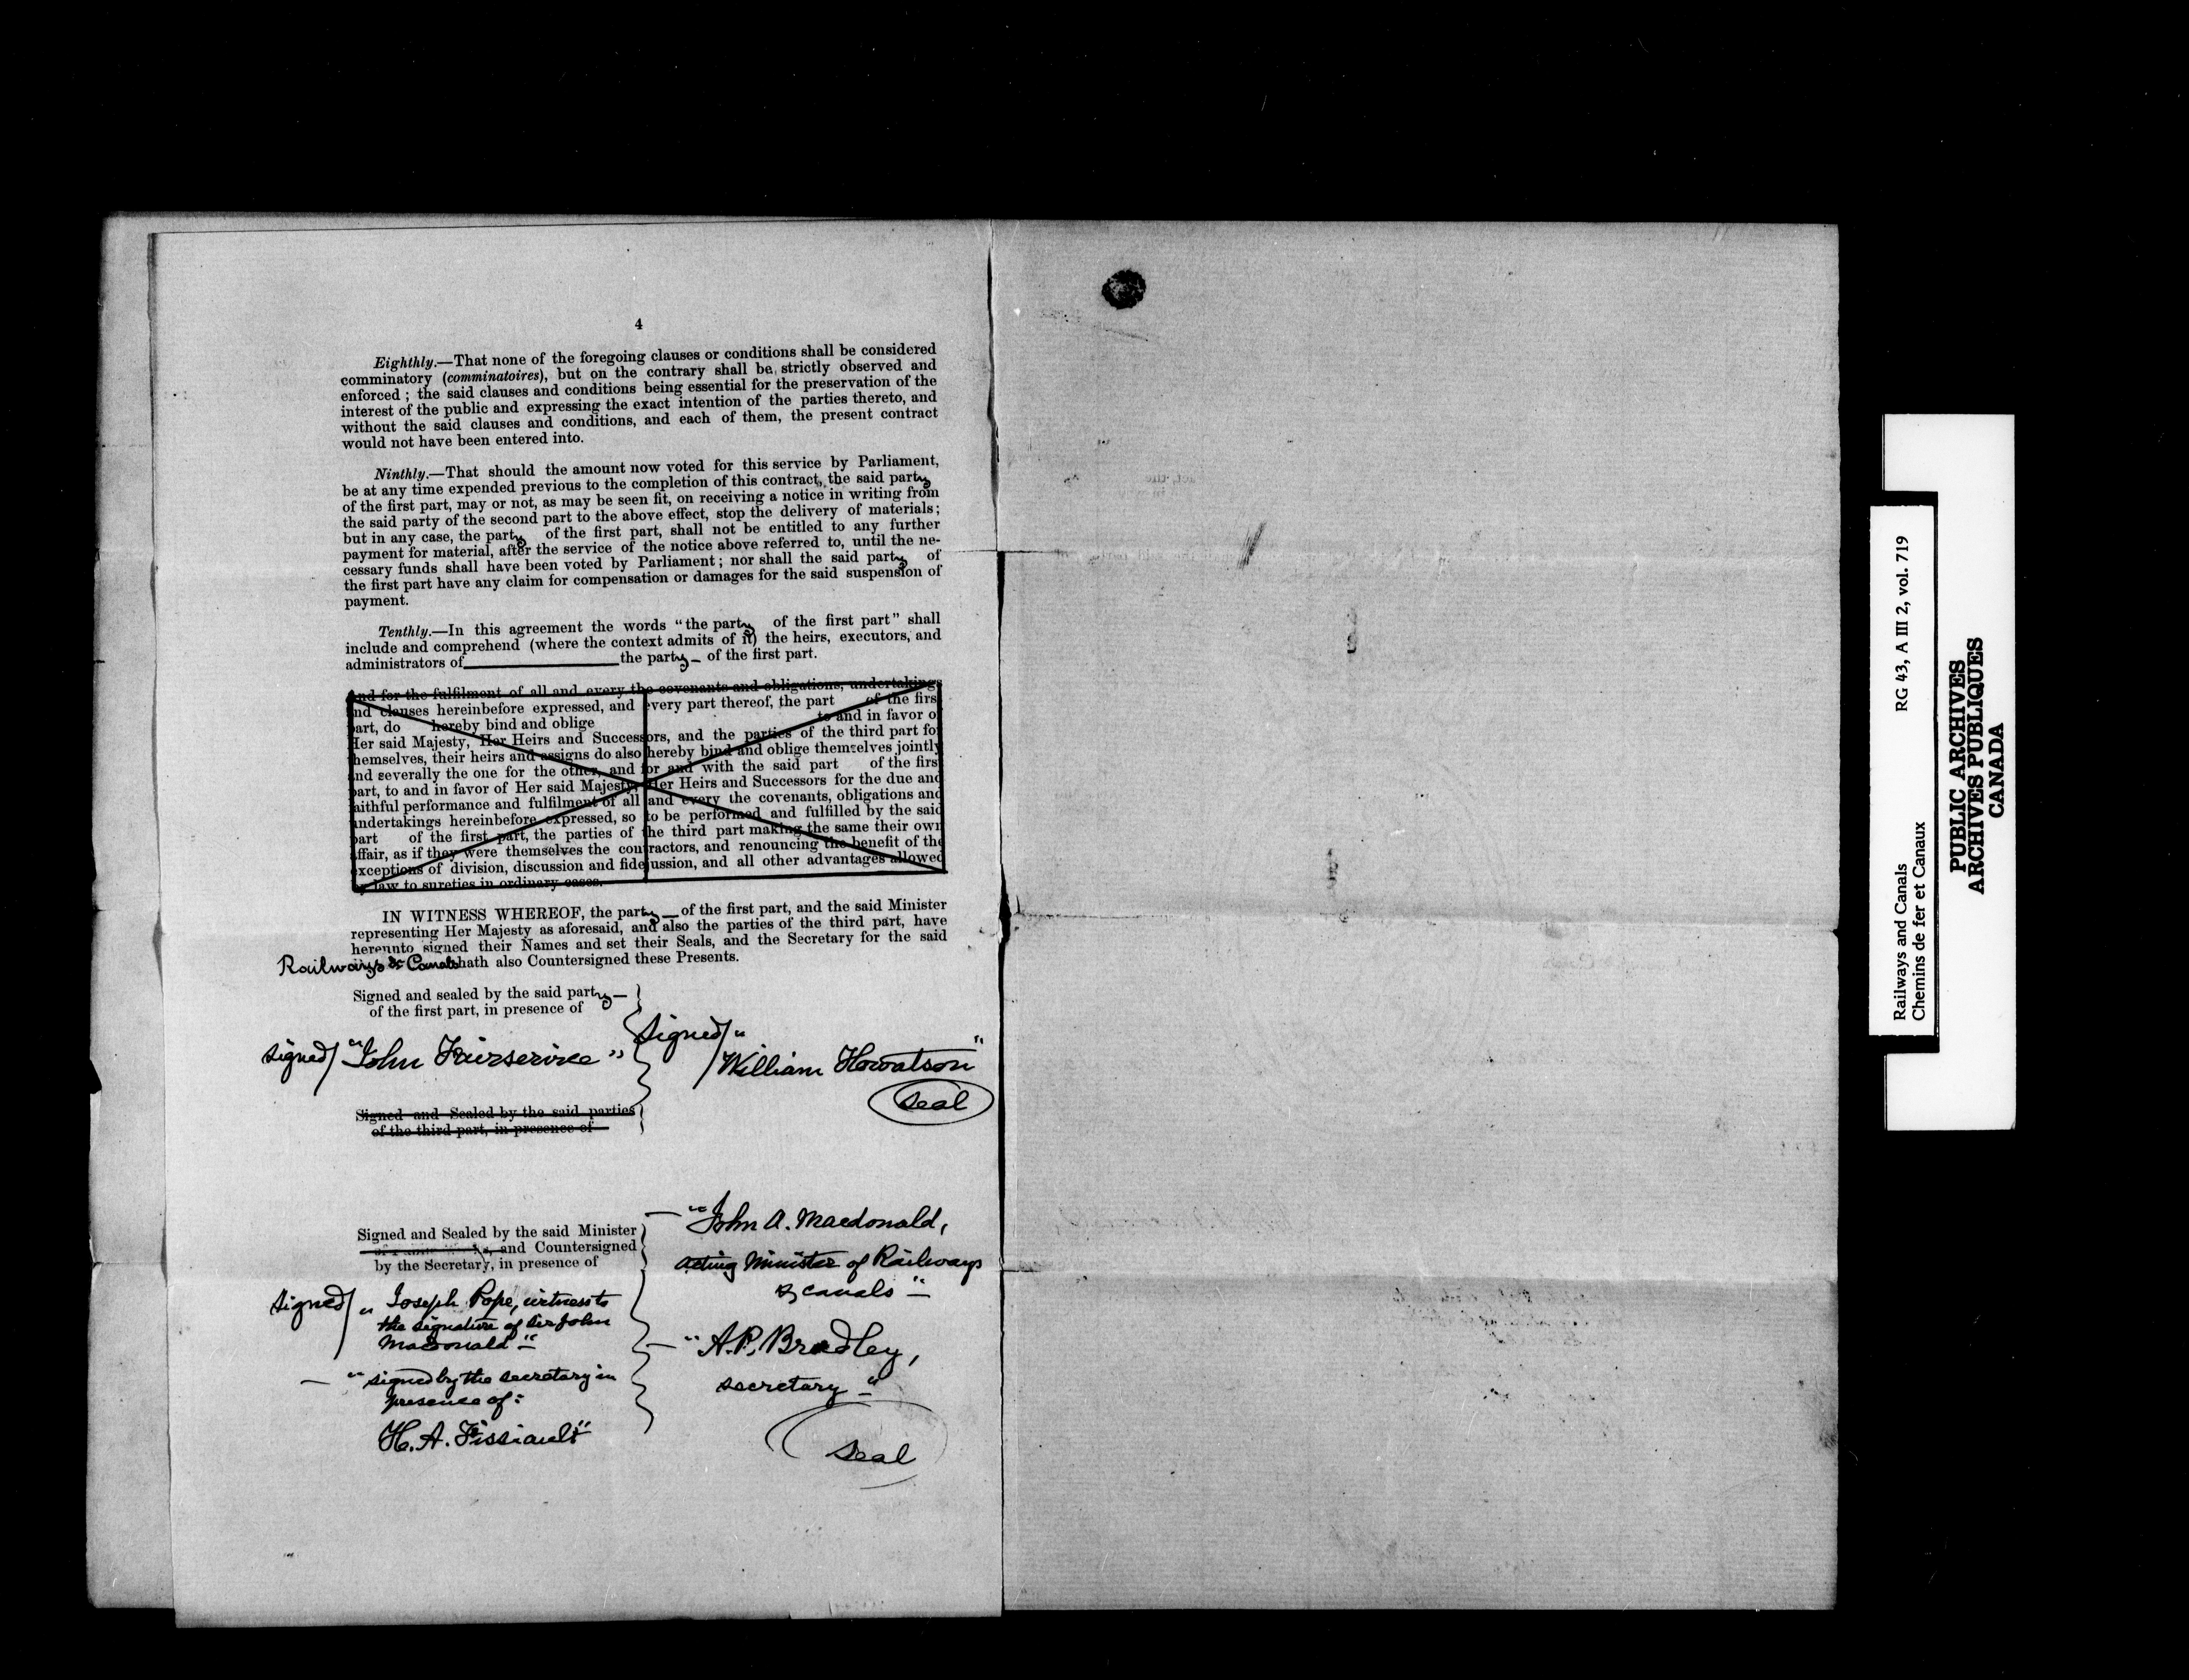 4
Eighthly.—That none of the foregoing clauses or conditions shall be considered
comminatory (comminatoires), but on the contrary shall be strictly observed and
enforced ; the said clauses and conditions being essential for the preservation of the
interest of the public and expressing the exact intention of the parties thereto, and
without the said clauses and conditions, and each of them, the present contract
would not have been entered into.
Ninthly.—That should the amount now voted for this service by Parliament,
be at any time expended previous to the completion of this contract, the said party
of the first part, may or not, as may be seen fit, on receiving a notice in writing from
the said party of the second part to the above effect, stop the delivery of materials;
but in any case, the party of the first part, shall not be entitled to any further
payment for material, after the service of the notice above referred to, until the ne-
cessary funds shall have been voted by Parliament ; nor shall the said party of
the first part have any claim for compensation or damages for the said suspension of
payment.
Tenthly.—In this agreement the words "the party of the first part" shall
include and comprehend (where the context admits of it) the heirs, executors, and
administrators of the party of the first part.
And for the fulfilment of all and every the covenants and obligations, undertakings
and clauses hereinbefore expressed, and every part thereof, the part of the first
part, do hereby bind and oblige to and in favor of
Her said Majesty, Her Heirs and Successors, and the parties of the third part for
themselves, their heirs and assigns do also hereby bind and oblige themselves jointly
and severally the one for the other, and for and with the said part of the first
part, to and in favor of Her said Majesty, Her Heirs and Successors for the due and
faithful performance and fulfilment of all and every the covenants, obligations and
undertakings hereinbefore expressed, so to be performed and fulfilled by the said
part of the first part, the parties of the third part making the same their own
affair, as if they were themselves the contractors, and renouncing the benefit of the
exceptions of division, discussion and fidejussion, and all other advantages allowed
by law to sureties in ordinary cases.
IN WITNESS WHEREOF, the party of the first part, and the said Minister
representing Her Majesty as aforesaid, and also the parties of the third part, have
hereunto signed their Names and set their Seals, and the Secretary for the said
Railways & Canals hath also Countersigned these Presents.
Signed and sealed by the said party
of the first part, in presence of
signed/ "John Fairservice"
Signed/ "
William Howatson"
Seal
Signed and Sealed by the said parties
of the third part, in presence of
Signed and Sealed by the said Minister
and Countersigned
by the Secretary, in presence of
"John A. Macdonald,
Acting Minister of Railways
& Canals"
Signed/ "Joseph Pope, witness to
the signature of Sir John
Macdonald"
"A. P. Bradley,
secretary"
"signed by the secretary in
presence of:
H. A. Fissiault"
Seal
Railways and Canals RG 43, A III 2, vol. 719
Chemins de fer et Canaux
PUBLIC ARCHIVES
ARCHIVES PUBLIQUES
CANADA